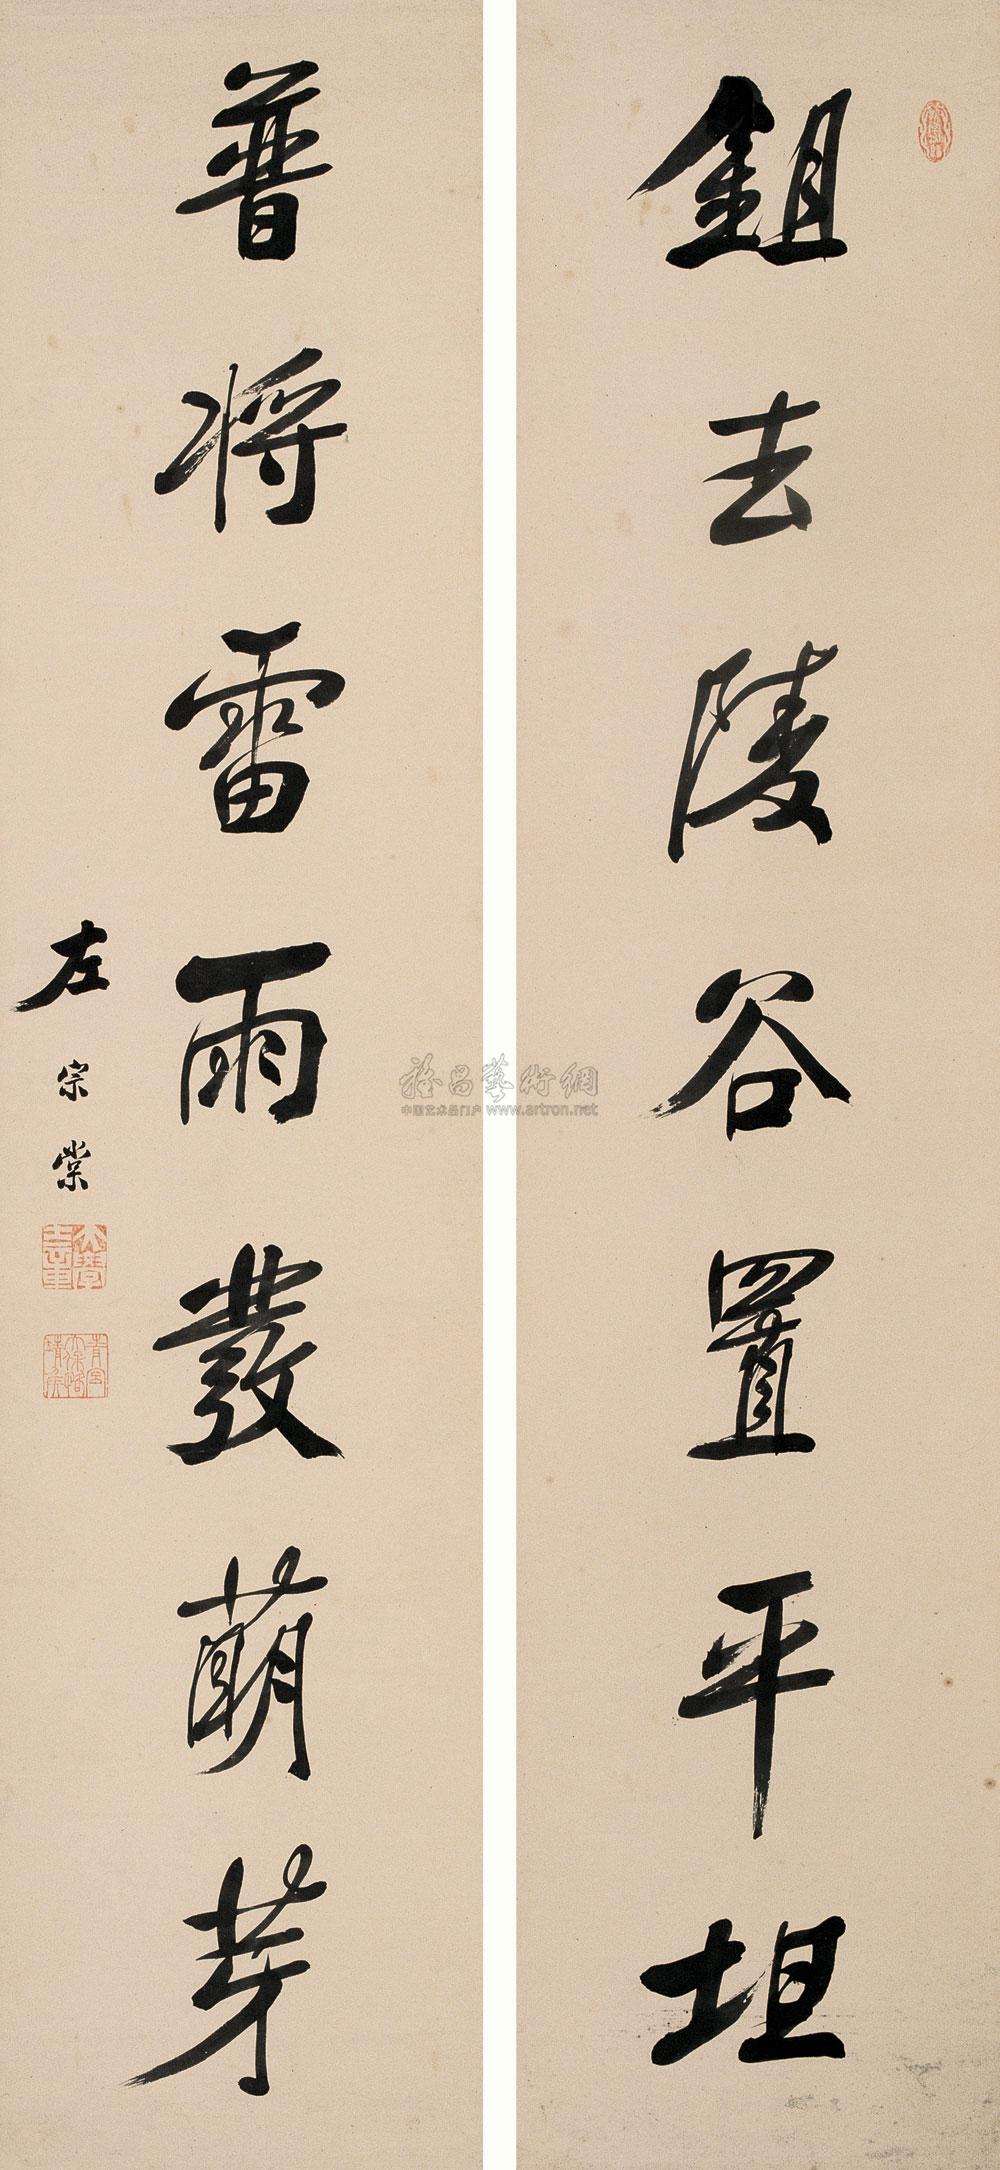 鉏去陵谷置平坦
普將雷雨發萌芽
左宗棠
雅昌藝術網
中国艺术品门户 www.artron.net